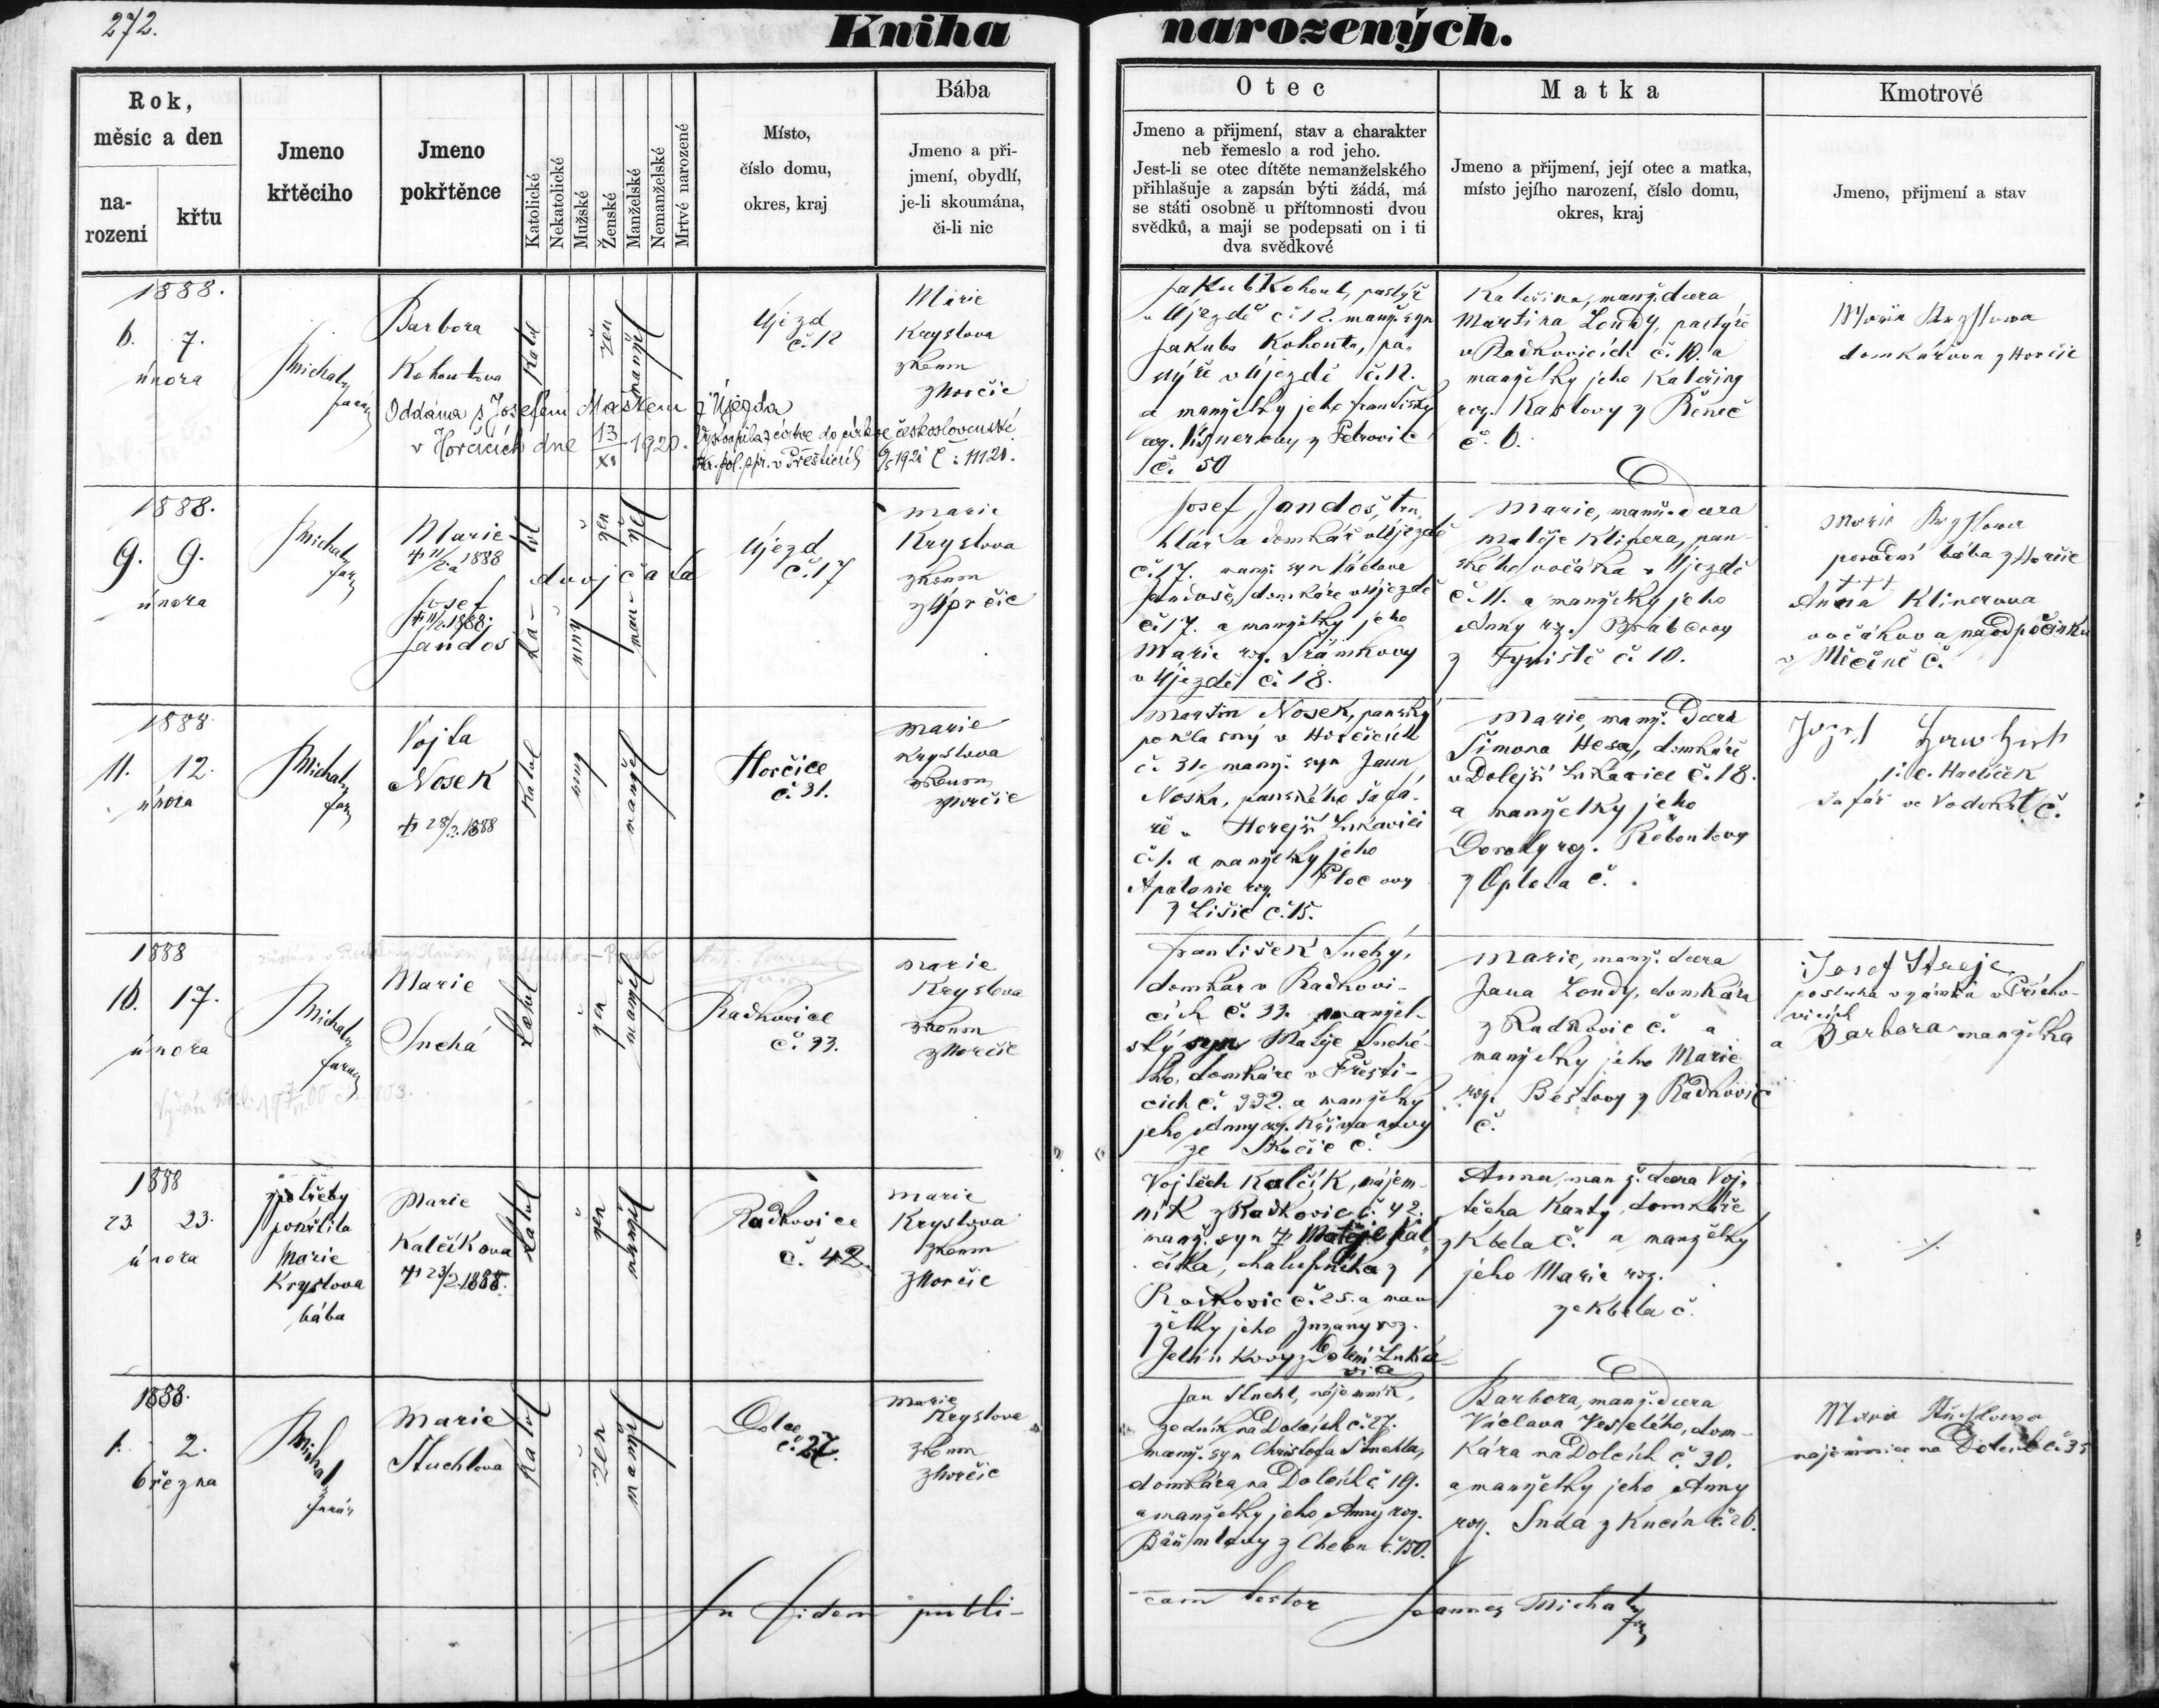 272.
Kniha narozených.
Rok,
měsíc a den
na-
rození
křtu
Jmeno
křtěcího
Jmeno
pokřtěnce
Katolické
Nekatolické
Mužské
Ženské
Manželské
Nemanželské
Mrtvé narozené
Místo,
číslo domu,
okres, kraj
Bába
Jmeno a při-
jmení, obydlí,
je-li skoumána,
či-li nic
Otec
Jmeno a přijmení, stav a charakter
neb řemeslo a rod jeho.
Jest-li se otec dítěte nemanželského
přihlašuje a zapsán býti žádá, má
se státi osobně u přítomnosti dvou
svědků, a mají se podepsati on i ti
dva svědkové
Matka
Jmeno a přijmení, její otec a matka,
místo jejího narození, číslo domu,
okres, kraj
Kmotrové
Jmeno, přijmení a stav
1888.
6. 7.
února
Michal
farář
Barbora
Kohoutova
Oddána s Josefem Maškem z Újezda
v Horčicích dne 13/XI 1920.
Vystoupila z církve do církve československé
Okr. pol. spr. v Přešticích 1921 č: 11121.
katol
žen
manžel
Újezd
č. 12
Marie
Kryslova
zkoum
z Horčic
Jakub Kohout, pastýř
v Újezdě č. 12. manž. syn
Jakuba Kohouta, pa-
stýře v Újezdě č. 12.
a manželky jeho Františky
roz. z Petrovic
č. 50
Kateřina, manž. dcera
Martina Loudy, pastýře
v Radkovicích č. 10. a
manželky jeho Kateřiny
roz. Karlovy z Řeneč
č. 6.
Marie Kryslowa
domkářova z Horčic
1888.
9. 9.
února
Michal
farář
Marie
† 11/2 1888
Josef
† 11/2 1888
Jandoš
ka- tol
dvojčata
muž
žen
man- žel
Újezd
č. 17
Marie
Kryslova
zkoum
z Horčic
Josef Jandoš, tru-
hlář a domkář v Újezdě
č. 17. manž. syn Václava
Jandoše, domkáře v Újezdě
č. 17. a manželky jeho
Marie roz. Šrámkovy
v Újezdě č. 18.
Marie, manž. dcera
Matěje Klinera, pan-
ského ovčáka v Újezdě
č. 11. a manželky jeho
Anny roz. Brabcovy
z Týniště č. 10.
Marie Kryslowa
porodní bába z Horčic
†††
Anna Klinerova
ovčákova na odpočinku
v Měčíně č.
1888
11. 12.
února
Michal
farář
Vojta
Nosek
† 28/2. 1888
katol
muž
manžel
Horčice
č. 31.
Marie
Kryslova
zkoum
z Horčic
Martin Nosek, panský
poklasný v Horčicích
č. 31. manž. syn Jana
Noska, panského šafá-
ře v Hořejší Lukavici
č. 1. a manželky jeho
Apolonie roz. Plocovy
z Lišic č. 15.
Marie, manž. dcera
Šimona Hesa, domkáře
v Dolejší Lukavici č. 18.
a manželky jeho
Doroty roz.
z Oplota č.
Jozef
j. č. Havlíček
šafář ve Vodokrt č.
1888
16. 17.
února
Michal
farář
Marie
Suchá
katol
žen
manžel
Radkovice
č. 33.
Marie
Kryslova
zkoum
z Horčic
František Suchý,
domkář v Radkovi-
cích č. 33. manžel-
ský syn Matěje Suché-
ho, domkáře v Přešti-
cích č. 332. a manželky
jeho Anny roz. Křivanovy
ze Skočic č.
Marie, manž. dcera
Jana Loudy, domkáře
z Radkovic č. a
manželky jeho Marie
roz. Beštovy z Radkovic
č.
Josef Streje
posluha v zámku v Přícho-
vicích
a Barbora manželka
1888
23. 23.
února
z potřeby
pokřtila
Marie
Kryslova
bába
Marie
Kalčíkova
† 23/2. 1888.
katol
žen
manžel
Radkovice
č. 42.
Marie
Kryslova
zkoum
z Horčic
Vojtěch Kalčík, nájem-
ník z Radkovic č. 42.
manž. syn † Matěje Kal-
číka, chalupníka z
Radkovic č. 25. a man-
želky jeho Zuzany roz.
Jelínkovy z Dolení Luka-
vice
Anna, manž. dcera Voj-
těcha Kanty, domkáře
z Kbela č. a manželky
jeho Marie roz.
ze Kbela č.
1888.
1. 2.
března
Michal
farář
Marie
Stuchlova
katol
žen
manžel
Dolce
č. 27.
Marie
Kryslova
zkoum
z Horčic
Jan Stuchl, nájemník,
zedník na Dolcích č. 27.
manž. syn Christofa Stuchla,
domkáře na Dolcích č. 19.
a manželky jeho Anny roz.
Bäumlovy z Cheb č. 150.
Barbora, manž. dcera
Václava Veselého, dom-
káře na Dolcích č. 30.
a manželky jeho Anny
roz. Suda z Kucín č. 26.
Marie
nájemnice na Dolcích č. 35
In fidem publi-
cam testor Joannes Michal
farář